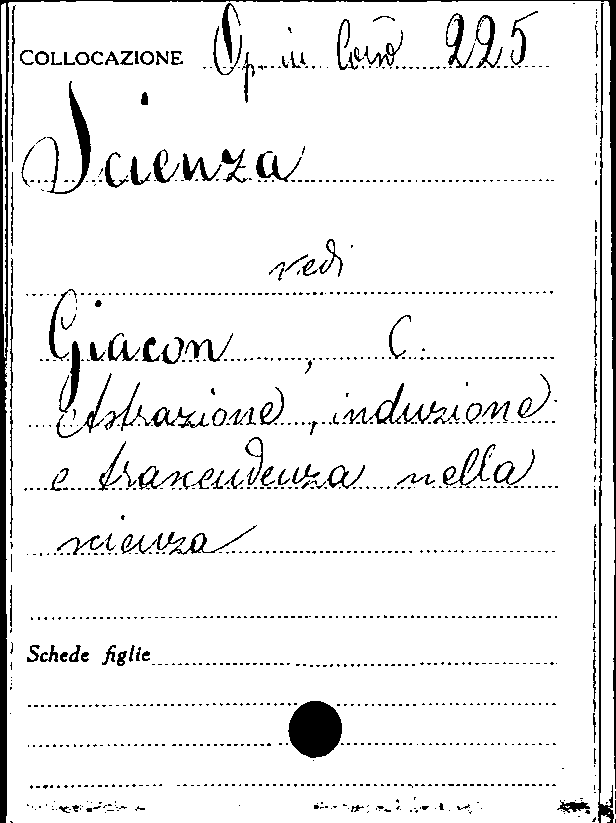 COLLOCAZIONE Op. in Corso 225
Scienza
vedi
Giacon, C.
Astrazione, induzione
e trascendenza nella
scienza
Schede figlie